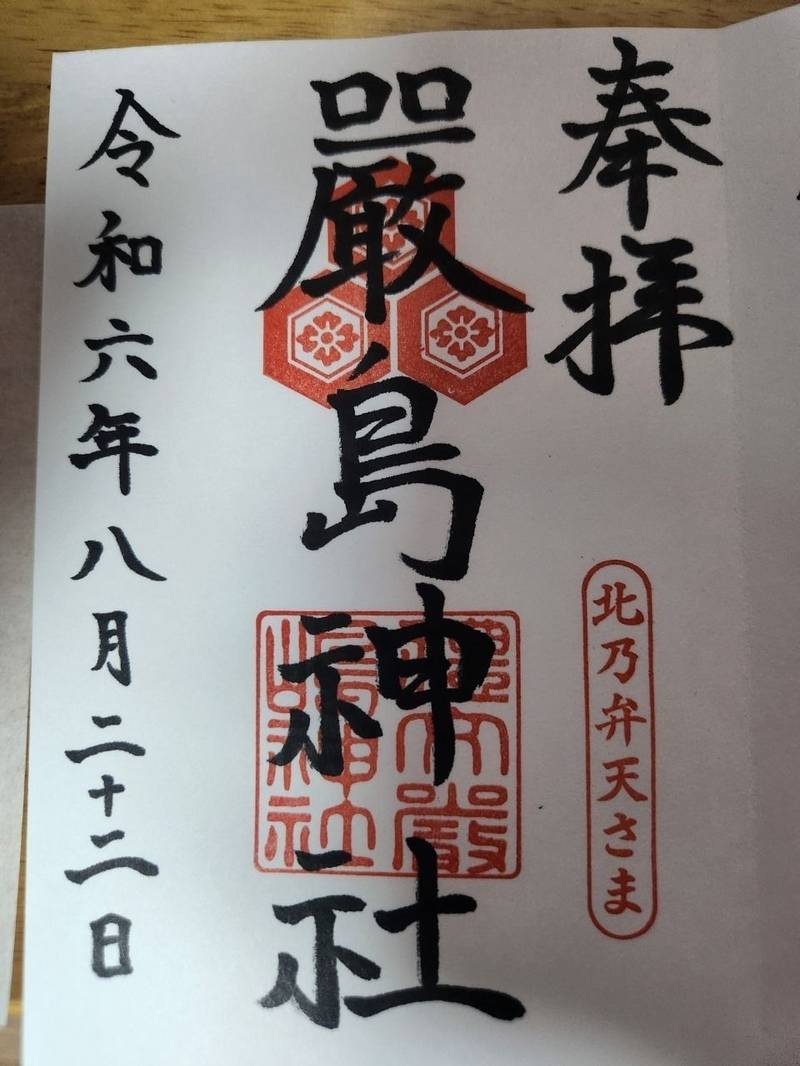 奉拝
北乃弁天さま
厳島神社
令和六年八月二十二日